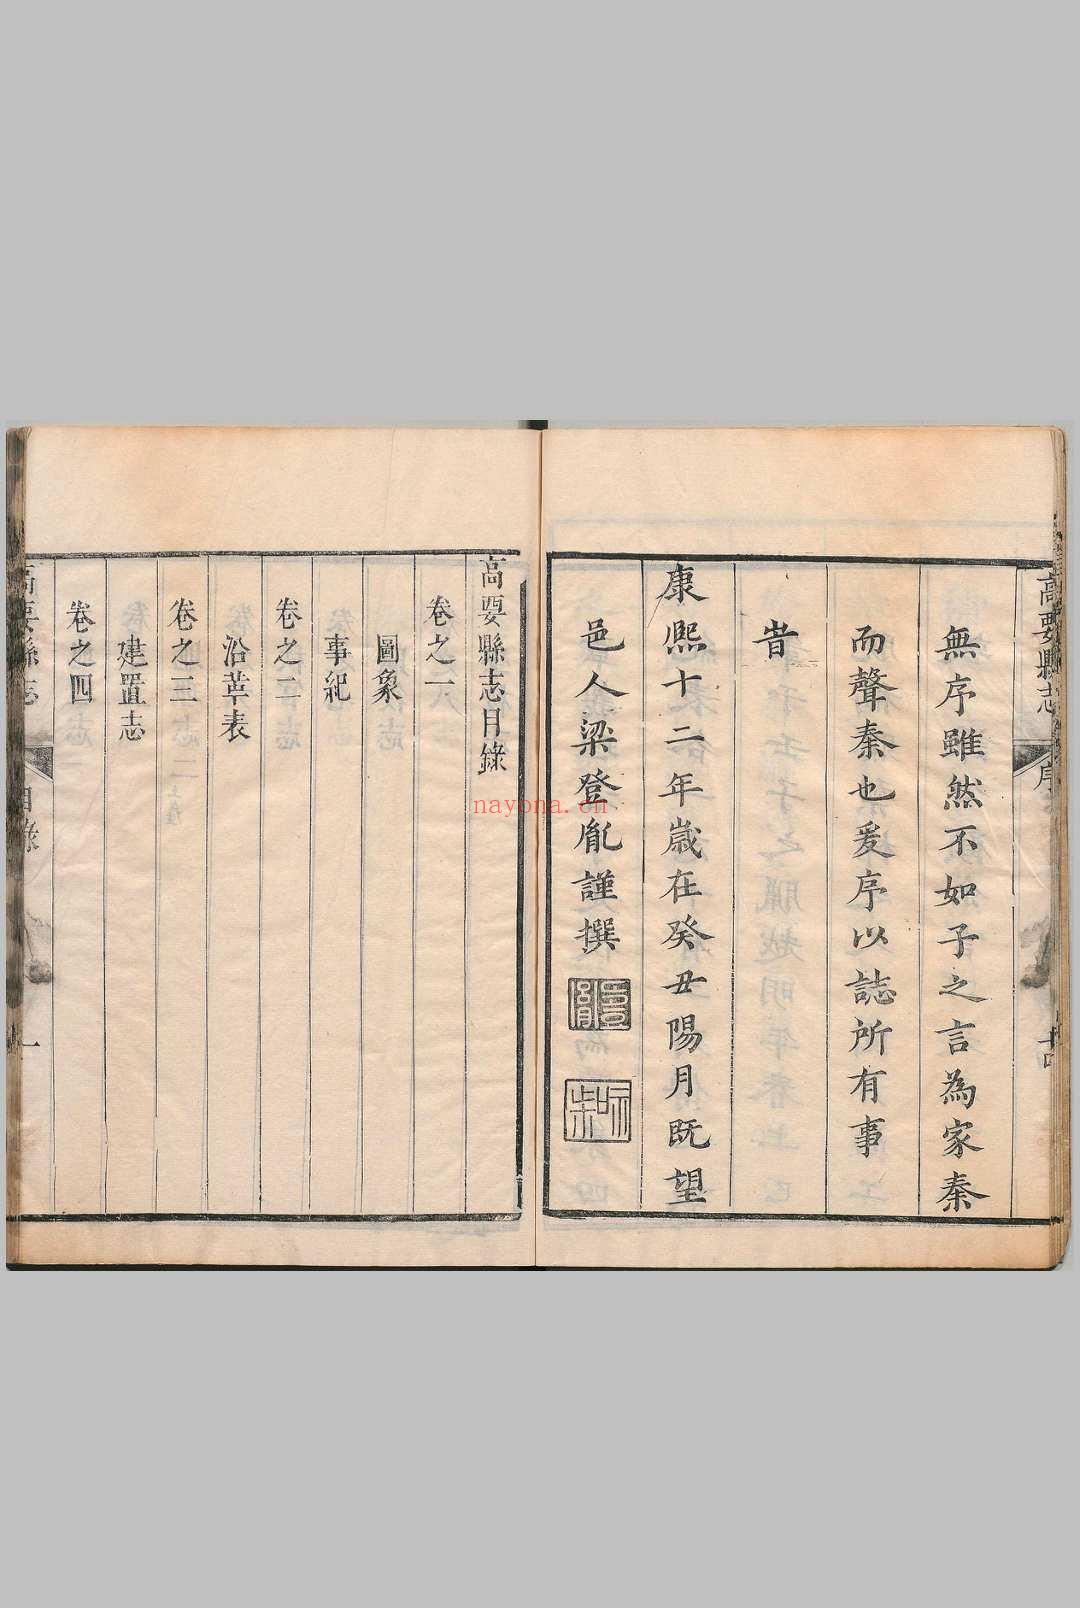 高要縣志
序
十四
無序雖然不如子之言為家秦
而聲秦也爰序以誌所有事
旹
康熙十二年歲在癸丑陽月既望
邑人梁登胤謹撰
高要縣志目錄
卷之一
圖象
事紀
卷之二
沿革表
卷之三
建置志
卷之四
高要縣志
目錄
一
nayona.cn